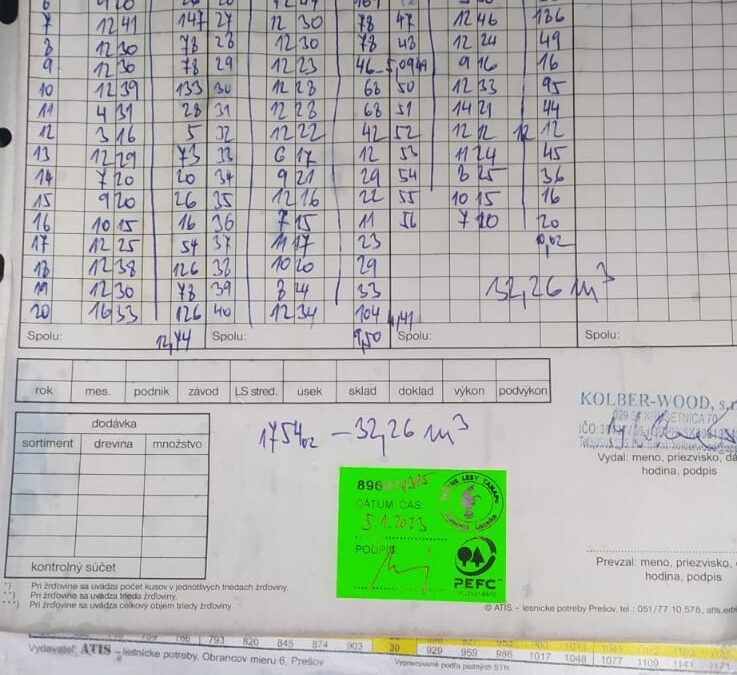 7 12 41 147 27 12 30 78 47 12 46 186
8 12 30 78 28 12 30 78 48 12 24 49
9 12 30 78 29 12 23 46 9 16 16
10 12 39 133 30 12 28 68 50 12 33 95
11 4 31 28 31 12 28 68 51 14 21 44
12 3 16 5 32 12 22 42 52 12 12 12
13 12 29 73 33 6 17 12 53 11 24 45
14 7 20 20 34 9 21 29 54 8 25 36
15 9 20 26 35 12 16 22 55 10 15 16
16 10 15 16 36 7 15 11 56 7 20 20
17 12 25 54 37 11 17 23
18 12 38 126 38 10 20 29
19 12 30 78 39 8 24 33 32,26 m³
20 16 33 126 40 12 34 104
Spolu: 12,74 Spolu: 9,50 Spolu: Spolu:
rok mes. podnik závod LS stred. úsek sklad doklad výkon podvýkon
KOLBER-WOOD, s.r
dodávka
sortiment drevina množstvo
1754 – 32,26 m³
Vydal: meno, priezvisko, dá
hodina, podpis
896
DÁTUM, ČAS
5.1.2023
PODPIS
PEFC
kontrolný súčet
Prevzal: meno, priezvisko,
hodina, podpis
*) Pri žrďovine sa uvádza počet kusov v jednotlivých triedach žrďoviny.
**) Pri žrďovine sa uvádza trieda žrďoviny.
***) Pri žrďovine sa uvádza celkový objem triedy žrďoviny.
© ATIS – lesnícke potreby Prešov, tel.: 051/77 10 578, atis.erb
793 820 845 874 903
Vydavateľ: ATIS – lesnícke potreby, Obrancov mieru 6, Prešov
929 959 986 1017 1048 1077 1109 1141 1171
Vypracované podľa platných STN